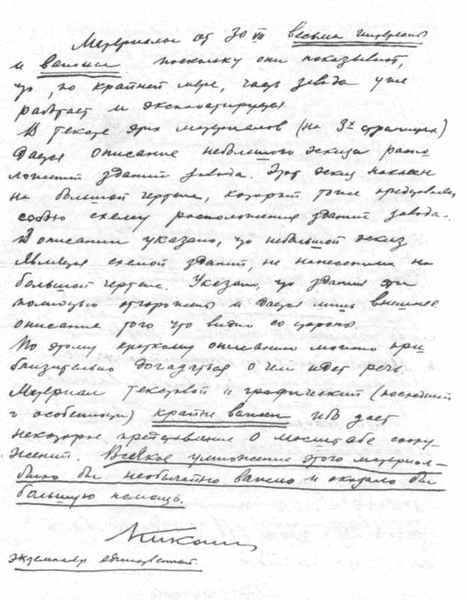 Материалы от 30 VII весьма интересны
и важны поскольку они показывают,
что, по крайней мере, часть завода уже
работает и эксплоатируется
В тексте этих материалов (на 3й странице)
дается описание небольшого эскиза распо-
ложения зданий завода. Этот эскиз наклеен
на большой чертеж, который тоже представляет
собою схему расположения зданий завода.
В описании указано, что небольшой эскиз
является схемой зданий, не нанесенных на
большой чертеж. Указано, что здания эти
полностью отгорожены и дается лишь внешнее
описание того что видно со стороны.
По этому краткому описанию можно при-
близительно догадаться о чем идет речь.
Материал текстовой и графический (последний
в особенности) крайне важен ибо дает
некоторое представление о масштабе соору-
жений. Всяческое умножение этого материала
было бы необычайно важно и оказало бы
большую помощь.
экземпляр единственный.